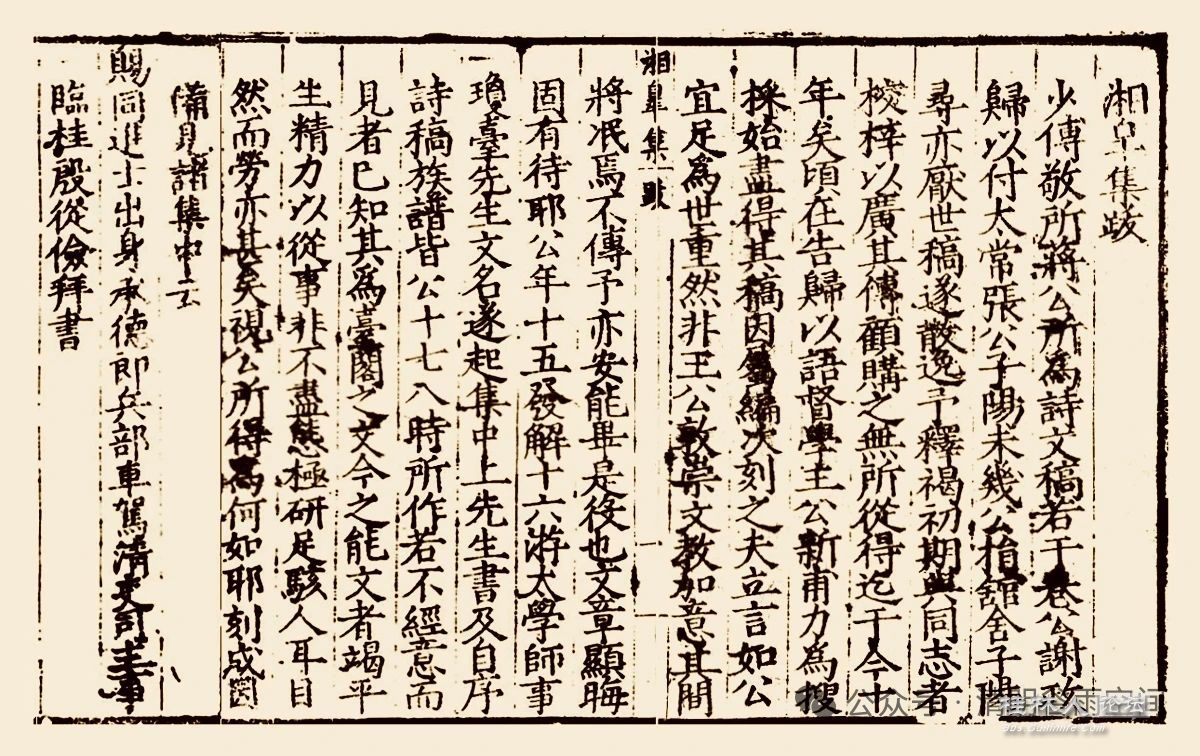 湘皋集跋
少傅敬所蔣公所為詩文稿若干卷公謝政
歸以付太常張公子陽未幾公捐舘舍子陽
尋亦厭世稿遂散逸予釋褐初期與同志者
梓以廣其傳顧購之無所從得迄于今十
年矣頃在告歸以語督學王公新甫力為搜
採始盡得其稿因屬編次刻之夫立言如公
宜足為世重然非王公敦崇文教加意其間
湘皋集 跋
將泯焉不傳予亦安能畢是役也文章顯晦
固有待耶公年十五發解十六游太學師事
瓊臺先生文名遂起集中上先生書及自序
詩稿族譜皆公十七八時所作若不經意而
見者已知其為臺閣之文今之能文者竭平
生精力以從事非不盡態極研足駭人耳目
然而勞亦甚矣視公所得為何如耶刻成因
備見諸集中云
賜同進士出身承德郎兵部車駕清吏司主事
臨桂殷從儉拜書
公众号
雨空间
桂林人论坛
bbs.guilinlife.com